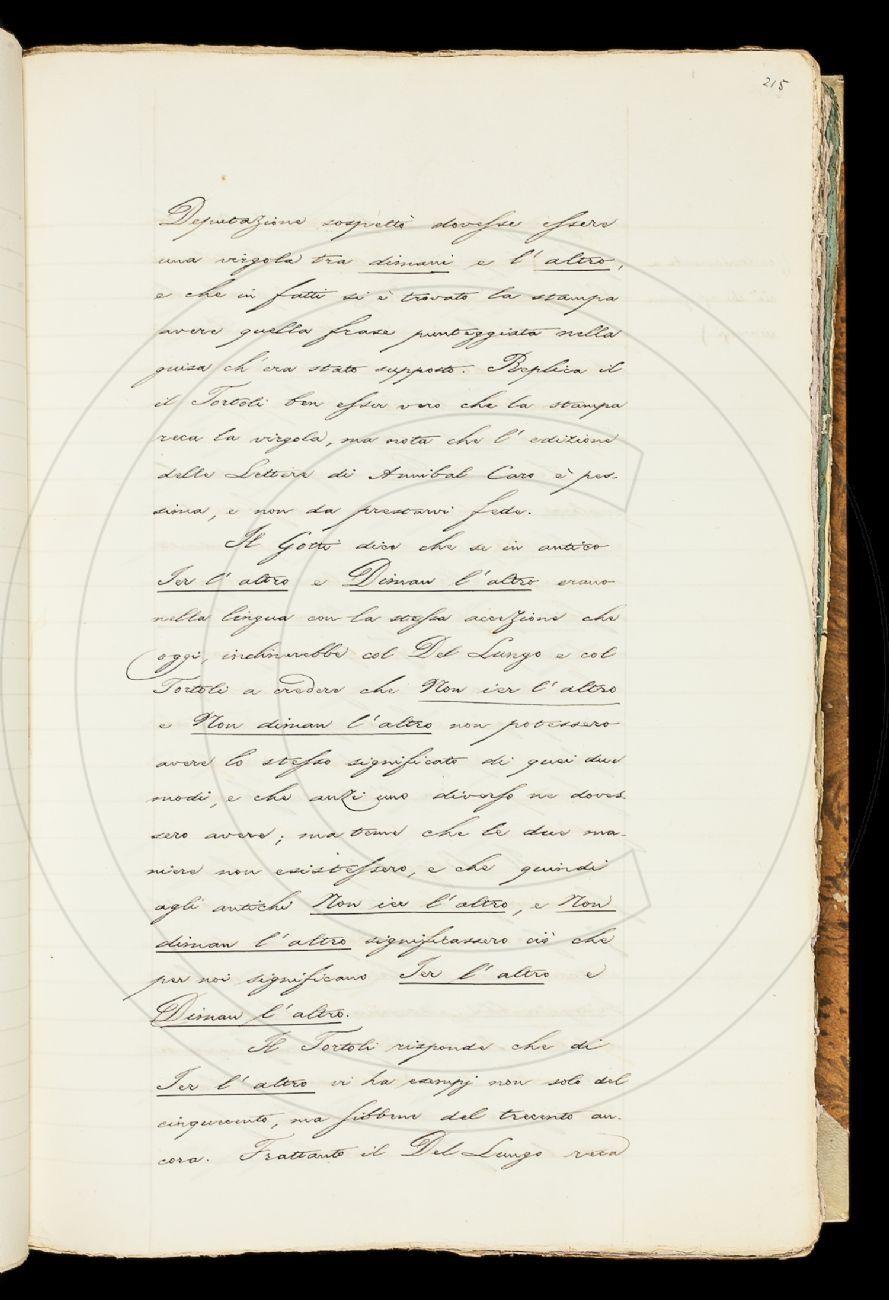 215
Deputazione sospettò dovesse essere
una virgola tra dimani e l'altro,
e che in fatti si è trovato la stampa
avere quella frase punteggiata nella
guisa ch'era stato supposto. Replica il
il Tortoli ben esser vero che la stampa
reca la virgola, ma nota che l'edizione
delle Lettere di Annibal Caro è pes-
sima, e non da prestarvi fede.
Il Gotti dice che se in antico
Ier l'altro e Diman l'altro erano
nella lingua con la stessa accezione che
oggi, inclinerebbe col Del Lungo e col
Tortoli a credere che Non ier l'altro
e Non diman l'altro non potessero
avere lo stesso significato di quei due
modi, e che anzi uno diverso ne doves-
sero avere; ma teme che le due ma-
niere non esistessero, e che quindi
agli antichi Non ier l'altro, e Non
diman l'altro significassero ciò che
per noi significano Ier l'altro e
Diman l'altro.
Il Tortoli risponde che di
Ier l'altro vi ha esempj non solo del
cinquecento, ma sibbene del trecento an-
cora. Frattanto il Del Lungo reca